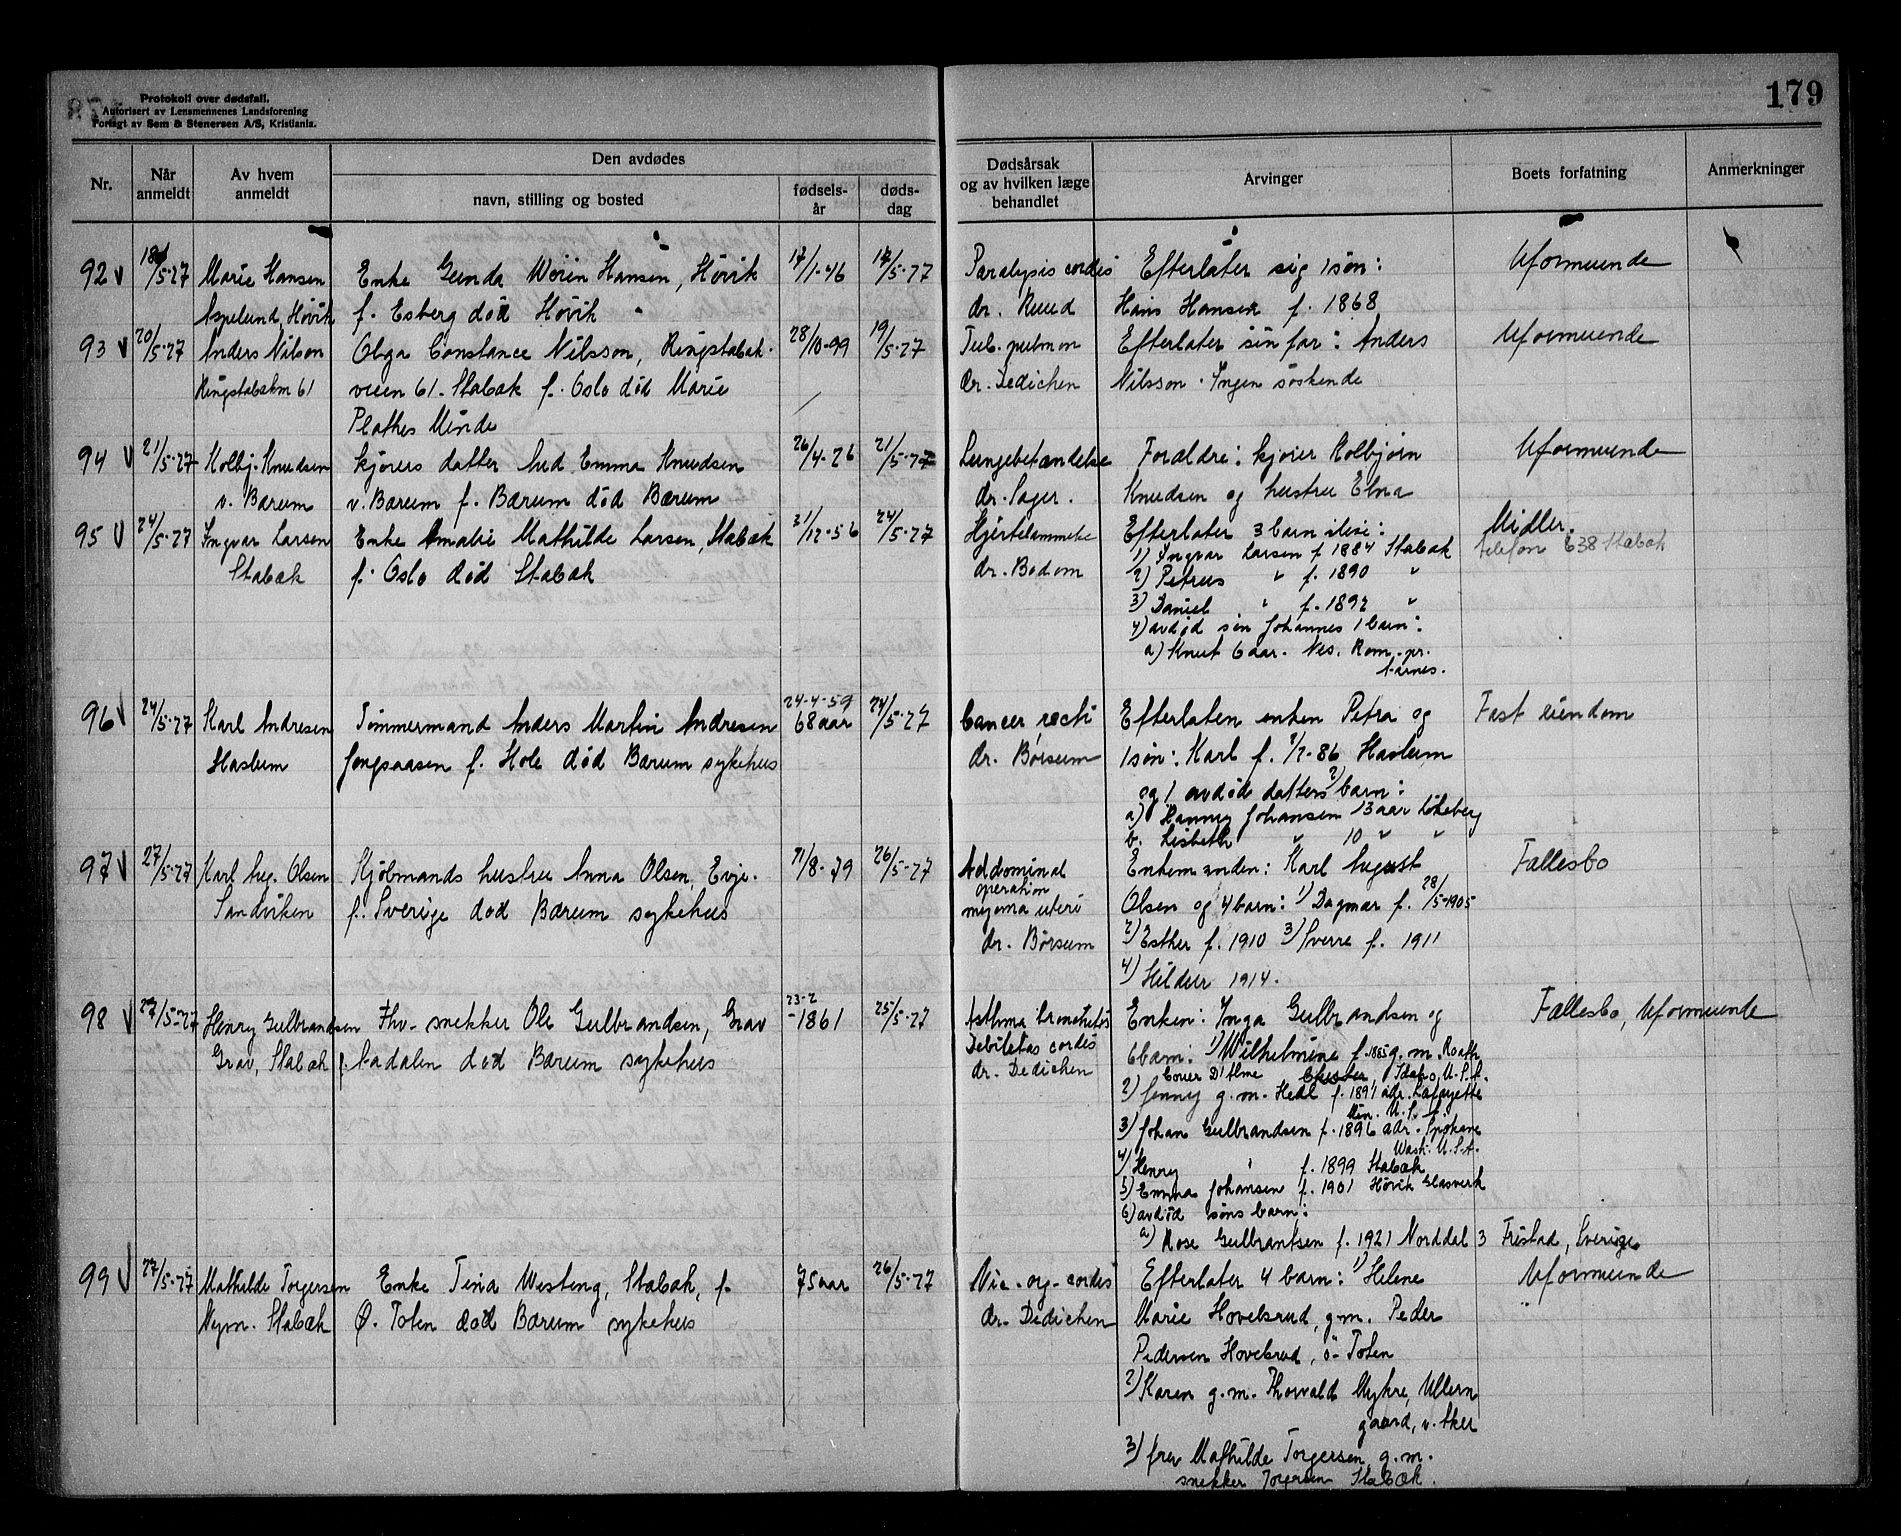 179
Protokoll over dødsfall.
Autorisert av Lensmennenes Landsforening
Forlagt av Sem & Stenersen A/S, Kristiania.
Nr.
Når anmeldt
Av hvem anmeldt
Den avdødes
navn, stilling og bosted
fødsels-år
døds-dag
Dødsårsak og av hvilken læge behandlet
Arvinger
Boets forfatning
Anmerkninger
92 18/5-27 Marie Hansen Enke Gunda Hansen, Høvik 17/1-46 17/5-27 Paralysis cordis Efterlater sig 1 søn: Uformuende
Høvik f. Esberg død Høvik dr. Ruud Hans Hansen f. 1868
93 20/5-27 Anders Nilson Olga Constance Nilsson, Ringstabæk- 28/10-99 19/5-27 Tub. pulmon Efterlater sin far: Anders Uformuende
61 veien 61. Stabæk f. Oslo død Marie dr. Dedichen Nilsson. Ingen søskende
Plathes Minde
94 21/5-27 Kolbj. Knudsen kjørers datter Aud Emma Knudsen 26/4-26 21/5-27 Lungebetændelse Forældre: kjører Kolbjørn Uformuende
v. Bærum v. Bærum f. Bærum død Bærum dr. Sager. Knudsen og hustru Elna
95 24/5-27 Ingvar Larsen Enke Amalie Mathilde Larsen, Stabæk 31/12-56 24/5-27 Hjertelammelse Efterlater 3 barn Midler.
Stabæk f. Oslo død Stabæk dr. Bodom 1) Ingvar Larsen f 1884 Stabæk telefon 638 Stabæk
2) Petrus " f. 1890 "
3) Daniel " f. 1892 "
4) avdød søn Johannes 1 barn:
a) Knut 6 aar. Nes, Rom. pr.
Aarnes.
96 24/5-27 Karl Andresen Tømmermand Anders Martin Andresen 24-4-59 68 aar 24/5-27 Cancer recti Efterlaten enken Petra og Fast eiendom
Haslum Jongsaasen f. Hole død Bærum sykehus dr. Børsum 1 søn: Karl f. 86 Haslum
og 1 avdød datters 2) barn:
a) Hanny Johansen 13 aar Løkeberg
b. Lisbeth " 10 " "
97 27/5-27 Karl Aug. Olsen Kjøbmands hustru Anna Olsen, Evje. 21/8-79 26/5-27 Addominal Enkemanden: Karl August Fællesbo
Sandviken f. Sverige død Bærum sykehus operation Olsen og 4 barn: 1) Dagmar f. 28/5-1905
myoma uteri 2) Esther f. 1910 3) Sverre f. 1911
dr. Børsum 4) Hildur 1914.
98 27/5-27 Henry Gulbrandsen Fhv. snekker Ole Gulbrandsen, Grav 23-2-1861 25/5-27 Asthma bronchitis Enken: Inga Gulbrandsen og Fællesbo, Uformuende
Grav, Stabæk f. Aadalen død Bærum sykehus Debiletas cordis 6 barn: 1) Wilhelmine f. 1885 g. m.
dr. Dedichen Idaho, U.S.A.
2) Jenny g. m. Hedl f. 1891 adr. Lafayette
Min. U. S. A.
3) Johan Gulbrandsen f. 1896 adr. Spokane
Wash. U.S.A.
4) Henry " f. 1899 Stabæk
5) Emma Johansen f. 1901 Høvik Glasverk
6) avdød søns barn:
a) Rose Gulbrantsen f. 1921 Norddal 3 Fristad, Sverige
99 27/5-27 Mathilde Torgersen Enke Tina Westeng, Stabæk, f. 75 aar 26/5-27 Vic. org. cordis Efterlater 4 barn: 1) Helene Uformuende
Stabæk Ø. Toten død Bærum sykehus dr. Dedichen Marie Hovelsrud, g.m. Peder
Pedersen Hovelsrud, Ø. Toten
2) Karen g.m. Thorvald Mykre, Ullern
gaard, v. Aker
3) fru Mathilde Torgersen, g.m.
snekker Torgersen Stabæk.